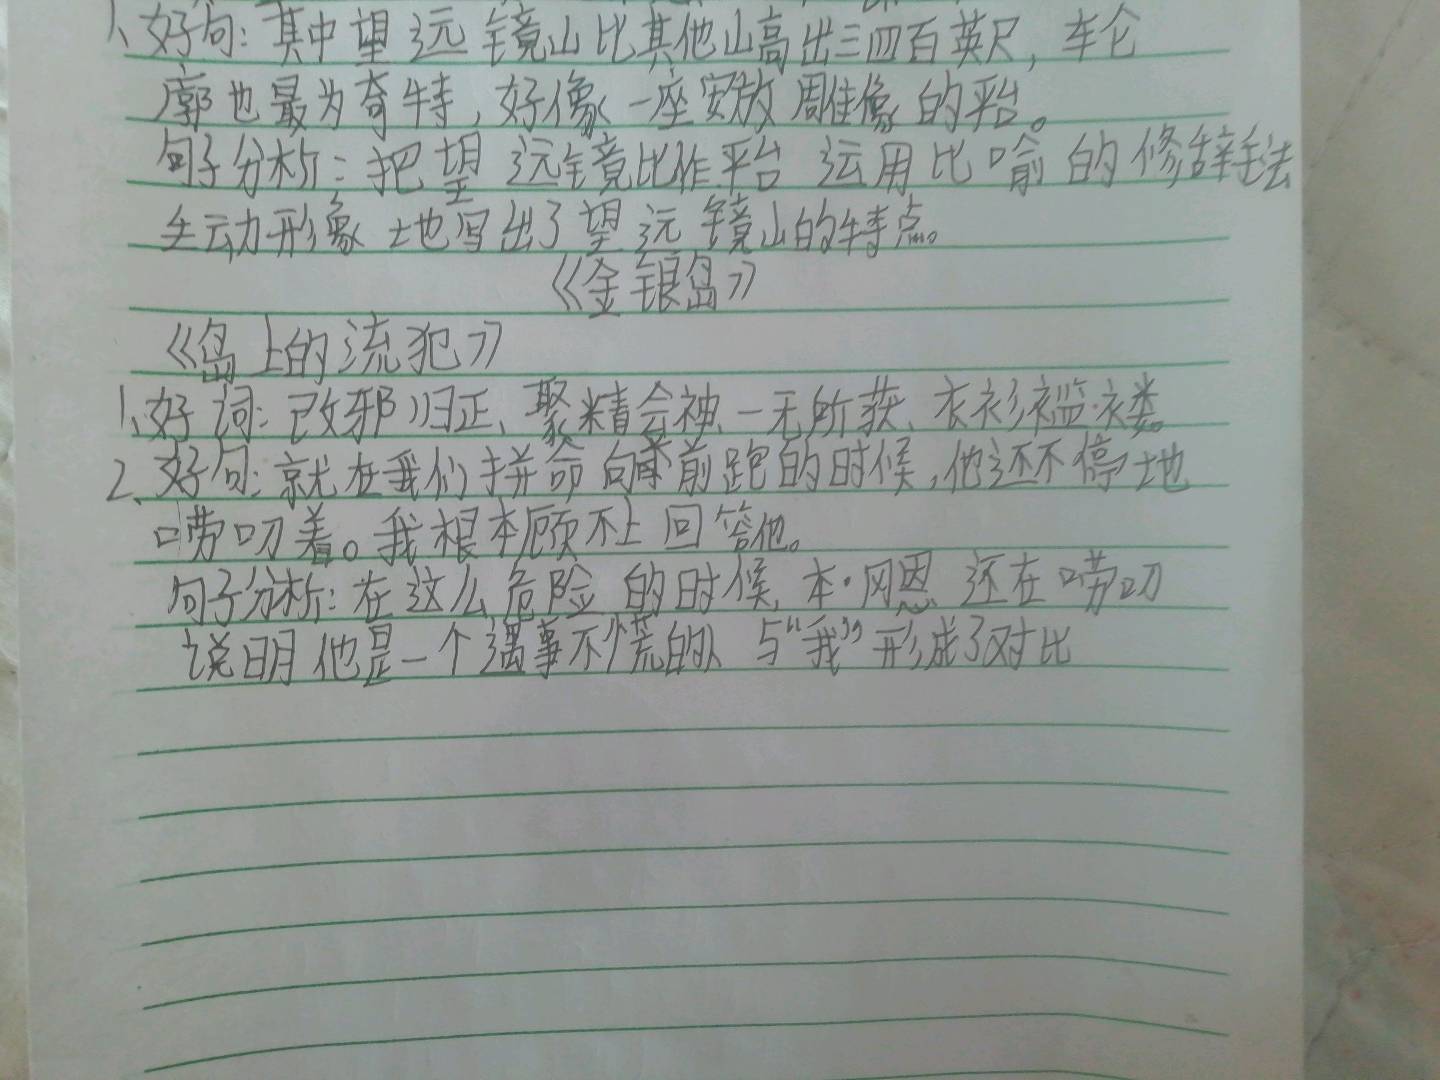 1、好句：其中望远镜山比其他山高出三四百英尺，轮
廓也最为奇特，好像一座安放雕像的平台。
句子分析：把望远镜比作平台 运用比喻的修辞手法
生动形象地写出了望远镜山的特点。
《金银岛》
《岛上的流犯》
1、好词：改邪归正、聚精会神、一无所获、衣衫褴褛。
2、好句：就在我们拼命向前跑的时候，他还不停地
唠叨着。我根本顾不上回答他。
句子分析：在这么危险的时候，本·冈恩还在唠叨
说明他是一个遇事不慌的人 与“我”形成了对比